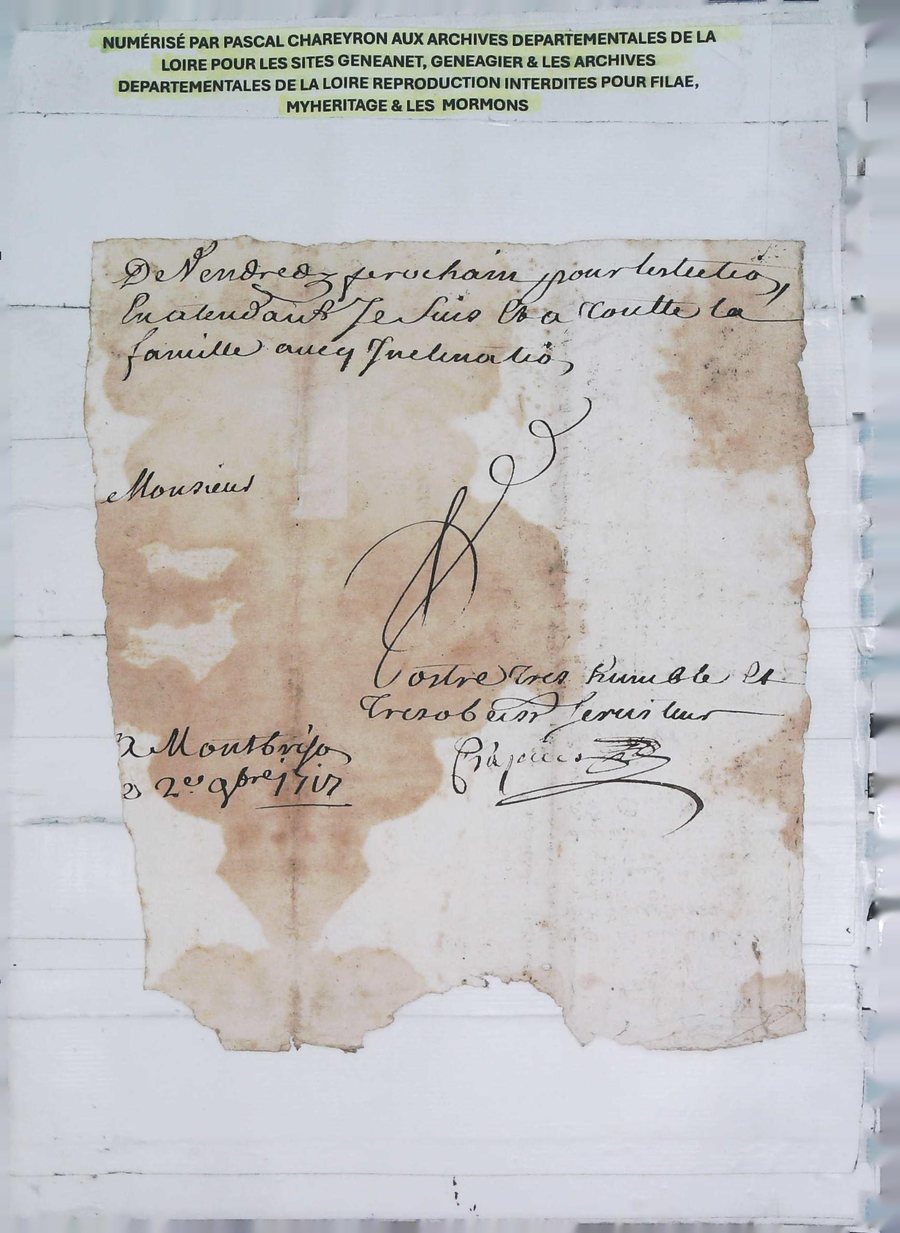 NUMÉRISÉ PAR PASCAL CHAREYRON AUX ARCHIVES DEPARTEMENTALES DE LA
LOIRE POUR LES SITES GENEANET, GENEAGIER & LES ARCHIVES
DEPARTEMENTALES DE LA LOIRE REPRODUCTION INTERDITES POUR FILAE,
MYHERITAGE & LES MORMONS
De Vendredy prochain pour
En atendant Je Suis Et a toutte la
famille avecq Inclinatiõ
Monsieur
Vostre tres humble et
Tresobeissr Serviteur
A Montbriso
2 9bre 1717